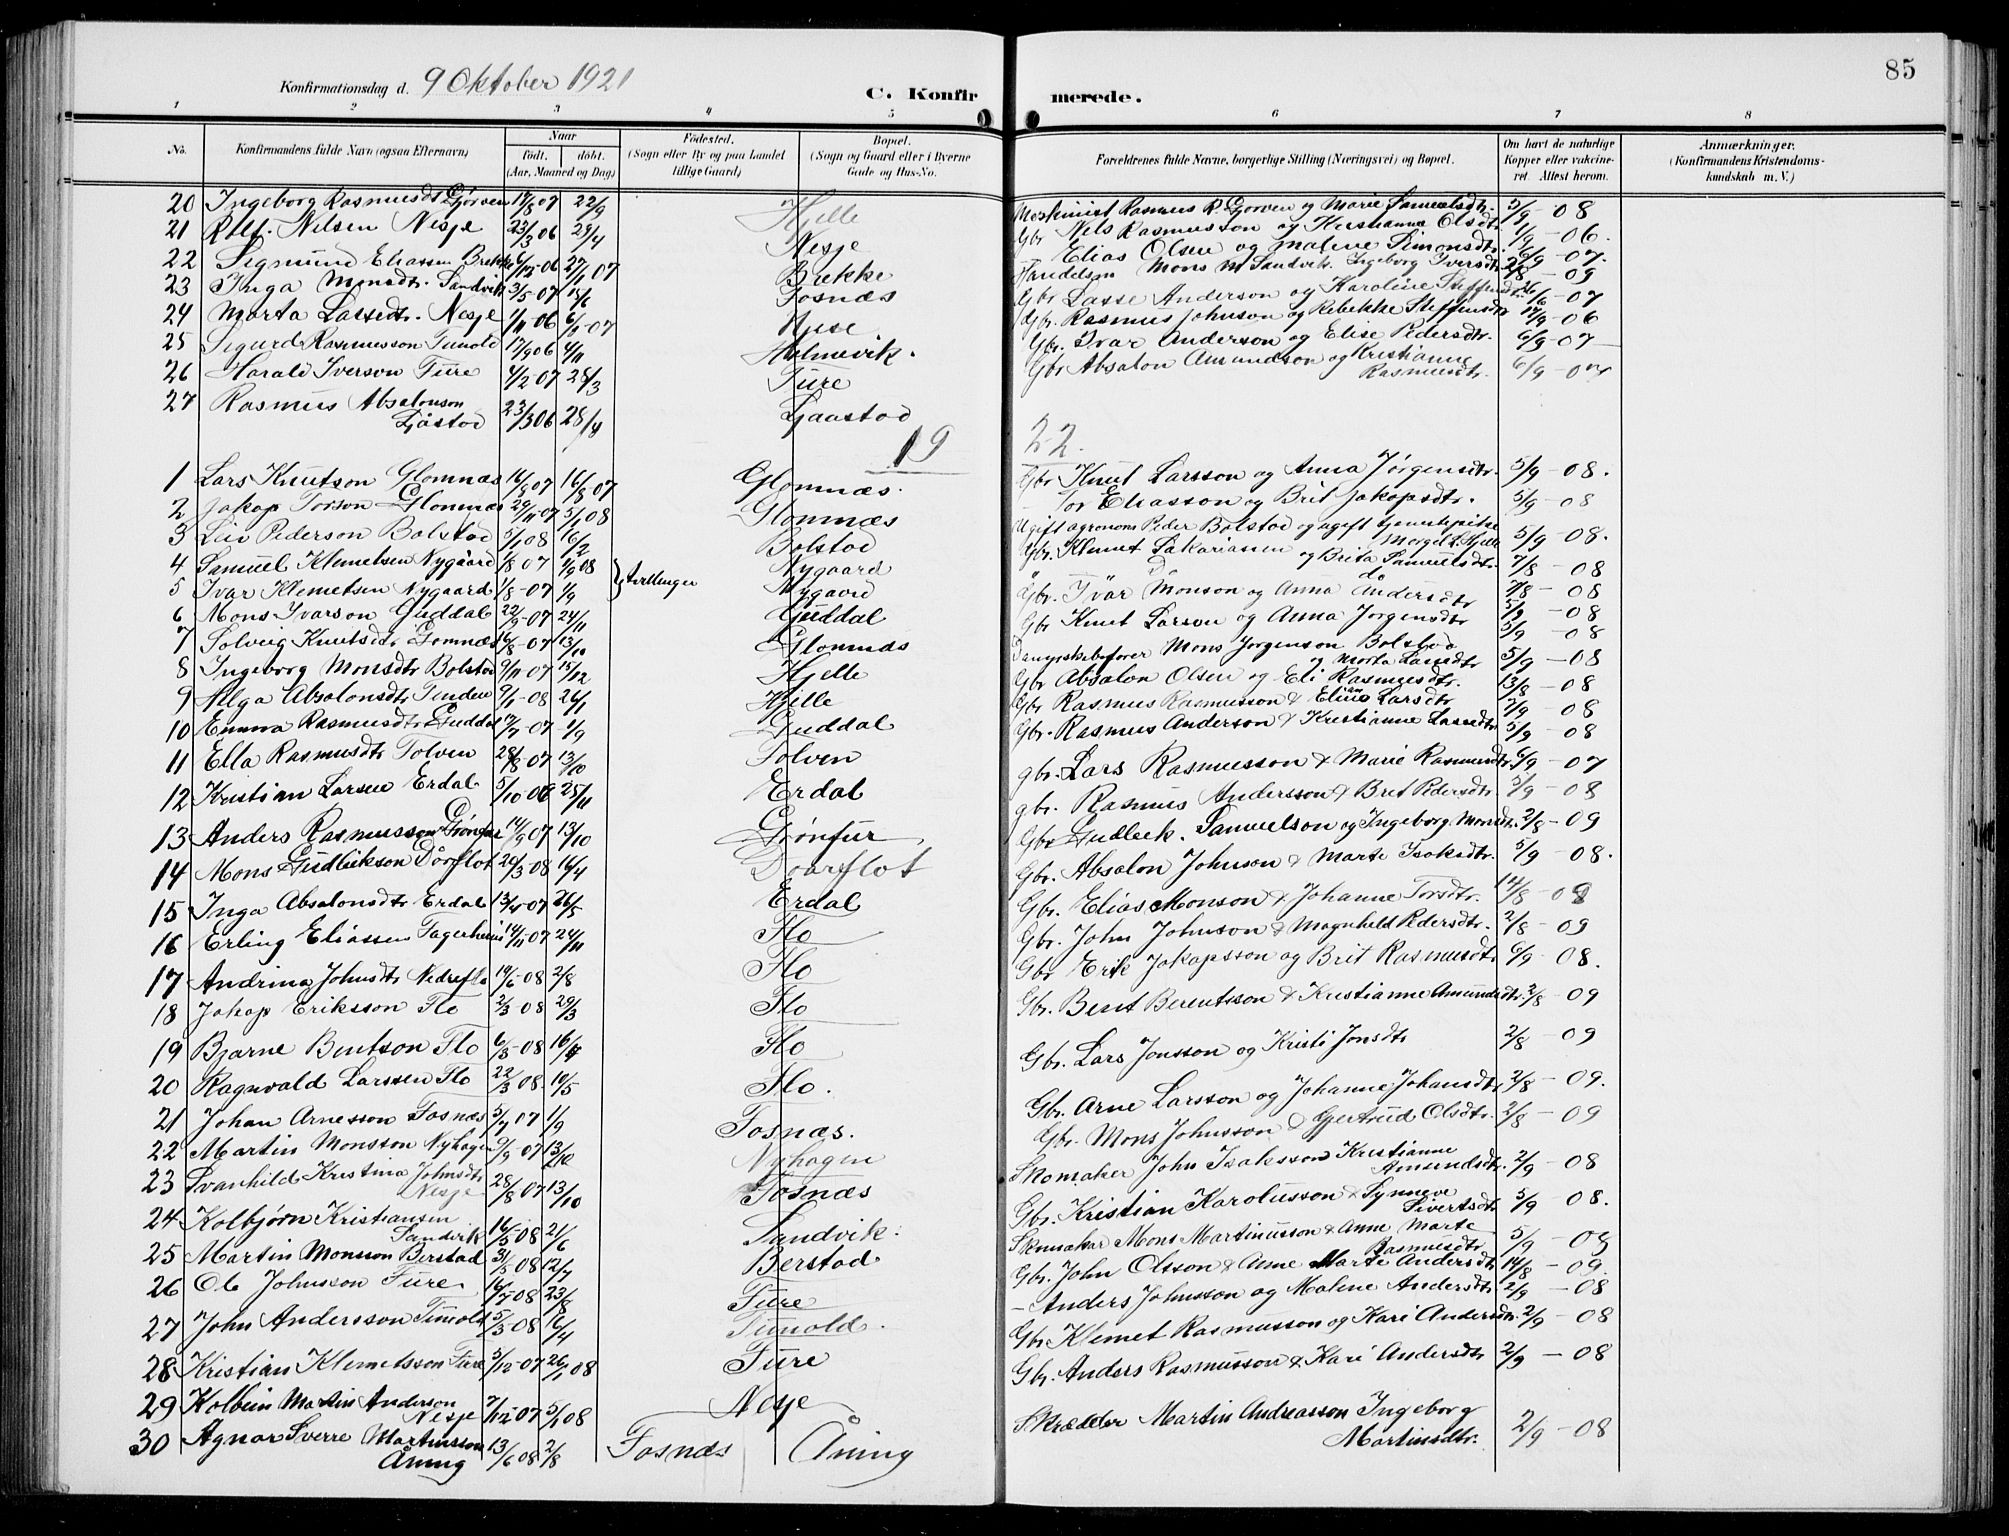 85
Konfirmationsdag d. 9 Oktober 1921
C. Konfirmerede.
1 2 3 4 5 6 7 8
No. Konfirmandens fulde Navn (ogsaa Efternavn) Naar født. døbt. (Aar, Maaned og Dag) Fødested. (Sogn eller By og paa Landet tillige Gaard) Bopæl. (Sogn og Gaard eller i Byerne Gade og Hus-No. Forældrenes fulde Navne, borgerlige Stilling (Næringsvei) og Bopæl. Om havt de naturlige Kopper eller vakcineret. Attest herom. Anmærkninger. (Konfirmandens Kristendomskundskab m. V.)
20 Ingeborg Rasmusdt Gjørven 17/8 07 22/9 Hjelle Maskinist Rasmus R. Gjørven og Marie Samuelsdtr. 5/9 - 08
21 Rolf Nilsen Nesje 23/3 06 29/4 Nesje Gbr Nils Rasmusson og Kristianne Olsdtr 1/9 - 06.
22 Sigmund Eliassen Brekke 6/12-06 27/1 07 Brekke Elias Olsen og Malene Simonsdtr. 6/9 - 07.
23 Inga Monsdtr. Sandvik 3/5-07 Fosnæs Handelsm Mons M Sandvik. Ingeborg Iversdtr 2/8 - 09
24 Marta Lassedtr. Nesje 1/11-06 6/1-07 Nesje Gbr Lasse Anderson og Karoline Steffensdtr. - 07
25 Sigurd Rasmusson Tunold 17/9 06 4/11 Holmevik. Gbr. Rasmus Johnson og Rebekke Steffensdtr 17/9 - 06
26 Harald Iverson Ture 4/2-07 28/3 Ture Gbr. Ivar Anderson og Elise Pedersdtr. 6/9-07
27 Rasmus Absalonson Gjåstad 23/3 06 28/4 Gjaastad Gbr Absalon Amundson og Kristianne Rasmusdtr. 6/9 - 07
19 22.
1 Lars Knutson Glomnæs 16/8 07 Glomnæs. Gbr Knut Larsson og Anna Jørgensdtr. 5/9 - 08.
2 Jakop Torson Glomnæs 29/11-07 5/1 08 Glomnæs - Tor Eliasson og Brit Jakopsdtr. 5/9 - 08
3 Leiv Pederson Bolstad 5/1 08 16/2 Bolstad Ugift agronom Peder Bolstad og ugift tjenestepike Margit L. Hjelle 5/9 - 08.
4 Samuel Klemetsen Nygaard 1/8 07 1/9 08 } tvillinger Nygaard Gbr. Klemet Sakariassen og Brita Samuelsdtr. 7/8 - 08
5 Ivar Klemetsen Nygaard 1/8-07 1/9 Nygaard do do 7/8 - 08
6 Mons Ivarson Guddal 22/9-07 24/11 Guddal Gbr. Ivar Monson og Anna Andersdtr 5/9 - 08
7 Solveig Knutsdtr Glomnæs 16/8-07 13/10 Glomnæs Gbr Knut Larson og Anna Jørgensdtr 5/9 - 08
8 Ingeborg Monsdtr Bolstad 9/11 07 15/12 Hjelle Dampskibsfører Mons Jørgenson Bolstad og Marta Lassedtr 5/9 - 08
9 Helga Absalonsdtr Tenden 9/1-08 26/1 Hjelle Gbr Absalon Olsen og Eli Rasmusdtr. 13/8 - 08
10 Emma Rasmusdtr Guddal 17/7-07 1/9 Guddal Gbr Rasmus Rasmusson & Eline Larsdtr 2/9 - 08
11 Ella Rasmusdtr Tolven 28/8-07 13/10 Tolven Gbr. Rasmus Anderson & Kristianne Larsdtr 5/9 - 08
12 Kristian Larsen Erdal 5/10-06 25/11 Erdal gbr. Lars Rasmusson & Marie Rasmusdtr 6/9 - 07
13 Anders Rasmusson Grønfur 14/9 07 13/10 Grønfur gbr. Rasmus Andersson & Brit Pedersdtr 5/9 - 08
14 Mons Gudleikson Dårflot 20/3-08 16/4 Daarflot Gbr Gudleik. Samuelson og Ingeborg Monsdtr. 2/8 - 09
15 Inga Absalonsdtr Erdal 13/4-07 26/5 Erdal Gbr. Absalon Johnson & Marte Isaksdtr. 5/9 - 08.
16 Erling Eliassen Fagerheim 14/11-07 24/11 Flo Gbr. Elias Monson & Johanne Torsdtr. 14/8 - 08
17 Andrina Johnsdtr Nedreflo 19/6-08 2/8 Flo Gbr. John Johnson & Magnhild Pedersdtr. 2/8 - 09
18 Jakop Eriksson Flo 2/3 08 29/3 Flo Gbr Erik Jakopsson og Brit Rasmusdtr 6/9 - 08.
19 Bjarne Bentson Flo 6/3-08 16/4 Flo Gbr. Bent Berentsson & Kristianne Amundsdtr. 2/8 - 09
20 Ragnvald Larssen Flo 22/3 08. 10/5 Flo. Gbr. Lars Jonsson og Kristi Jonsdtr 2/8 - 09
21 Johan Arnesson Fosnæs 5/7 07 1/9 Fosnæs. Gbr. Arne Larsson og Johanne Johansdtr 2/8 - 09.
22 Martin Monsson Nyhagen 9/9-07 13/10 Nyhagen Gbr. Mons Johnsson & Gjertrud Olsdtr. 2/8 - 09
23 Svanhild Kristina Johnsdtr Nesje 28/8 07 13/10 Fosnæs Skomaker John Isaksson Kristianne Amundsdtr. 2/9 - 08
24 Kolbjørn Kristiansen Sandvik 16/5 08 21/6 Sandvik. Gbr. Kristian Karolusson & Synneve Sivertsdtr 5/9 - 08.
25 Martin Monsson Berstad 31/5 08 12/7 Berstad Skomaker Mons Martinusson & Anne Marte Rasmusdtr 5/9 - 08
26 Ole Johnsson Ture 16/7-08 23/8 Ture Gbr. John Olsson & Anne Marte Andersdtr 14/8 - 09.
27 John Andersson Tunold 5/3-08 6/4 Tunold. - Anders Johnsson og Malene Andersdtr 2/9 - 08
28 Kristian Klemetsson Ture 5/12-07 26/1 08 Ture Gbr Klemet Rasmusson og Kari Andersdtr. 2/9 - 08
29 Kolbein Martin Anderson Nesje 7/12-07 5/1 08 Nesje Gbr. Anders Rasmusson & Kari Andersdtr 2/9 - 08
30 Agnar Sverre Martinsson Åning 13/6 08 2/8 Fosnæs Åning Skrædder Martin Andreasson Ingeborg Martinsdtr. 2/9 - 08